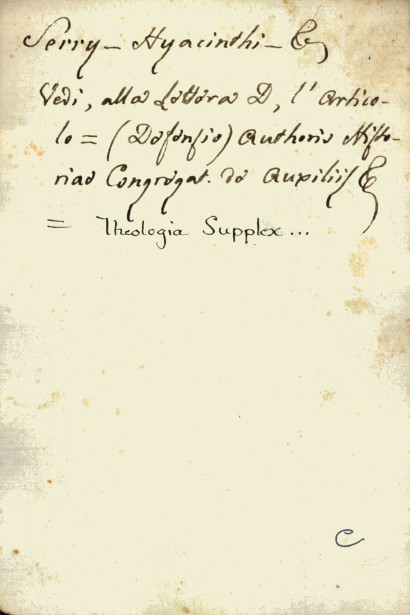 Serry - Hyacinthi - &
Vedi, alla Lettera D, l' Artico-
lo = (Defensio) Authoris Histo-
riae Congregat. de Auxiliis &
= Theologia Supplex...
C